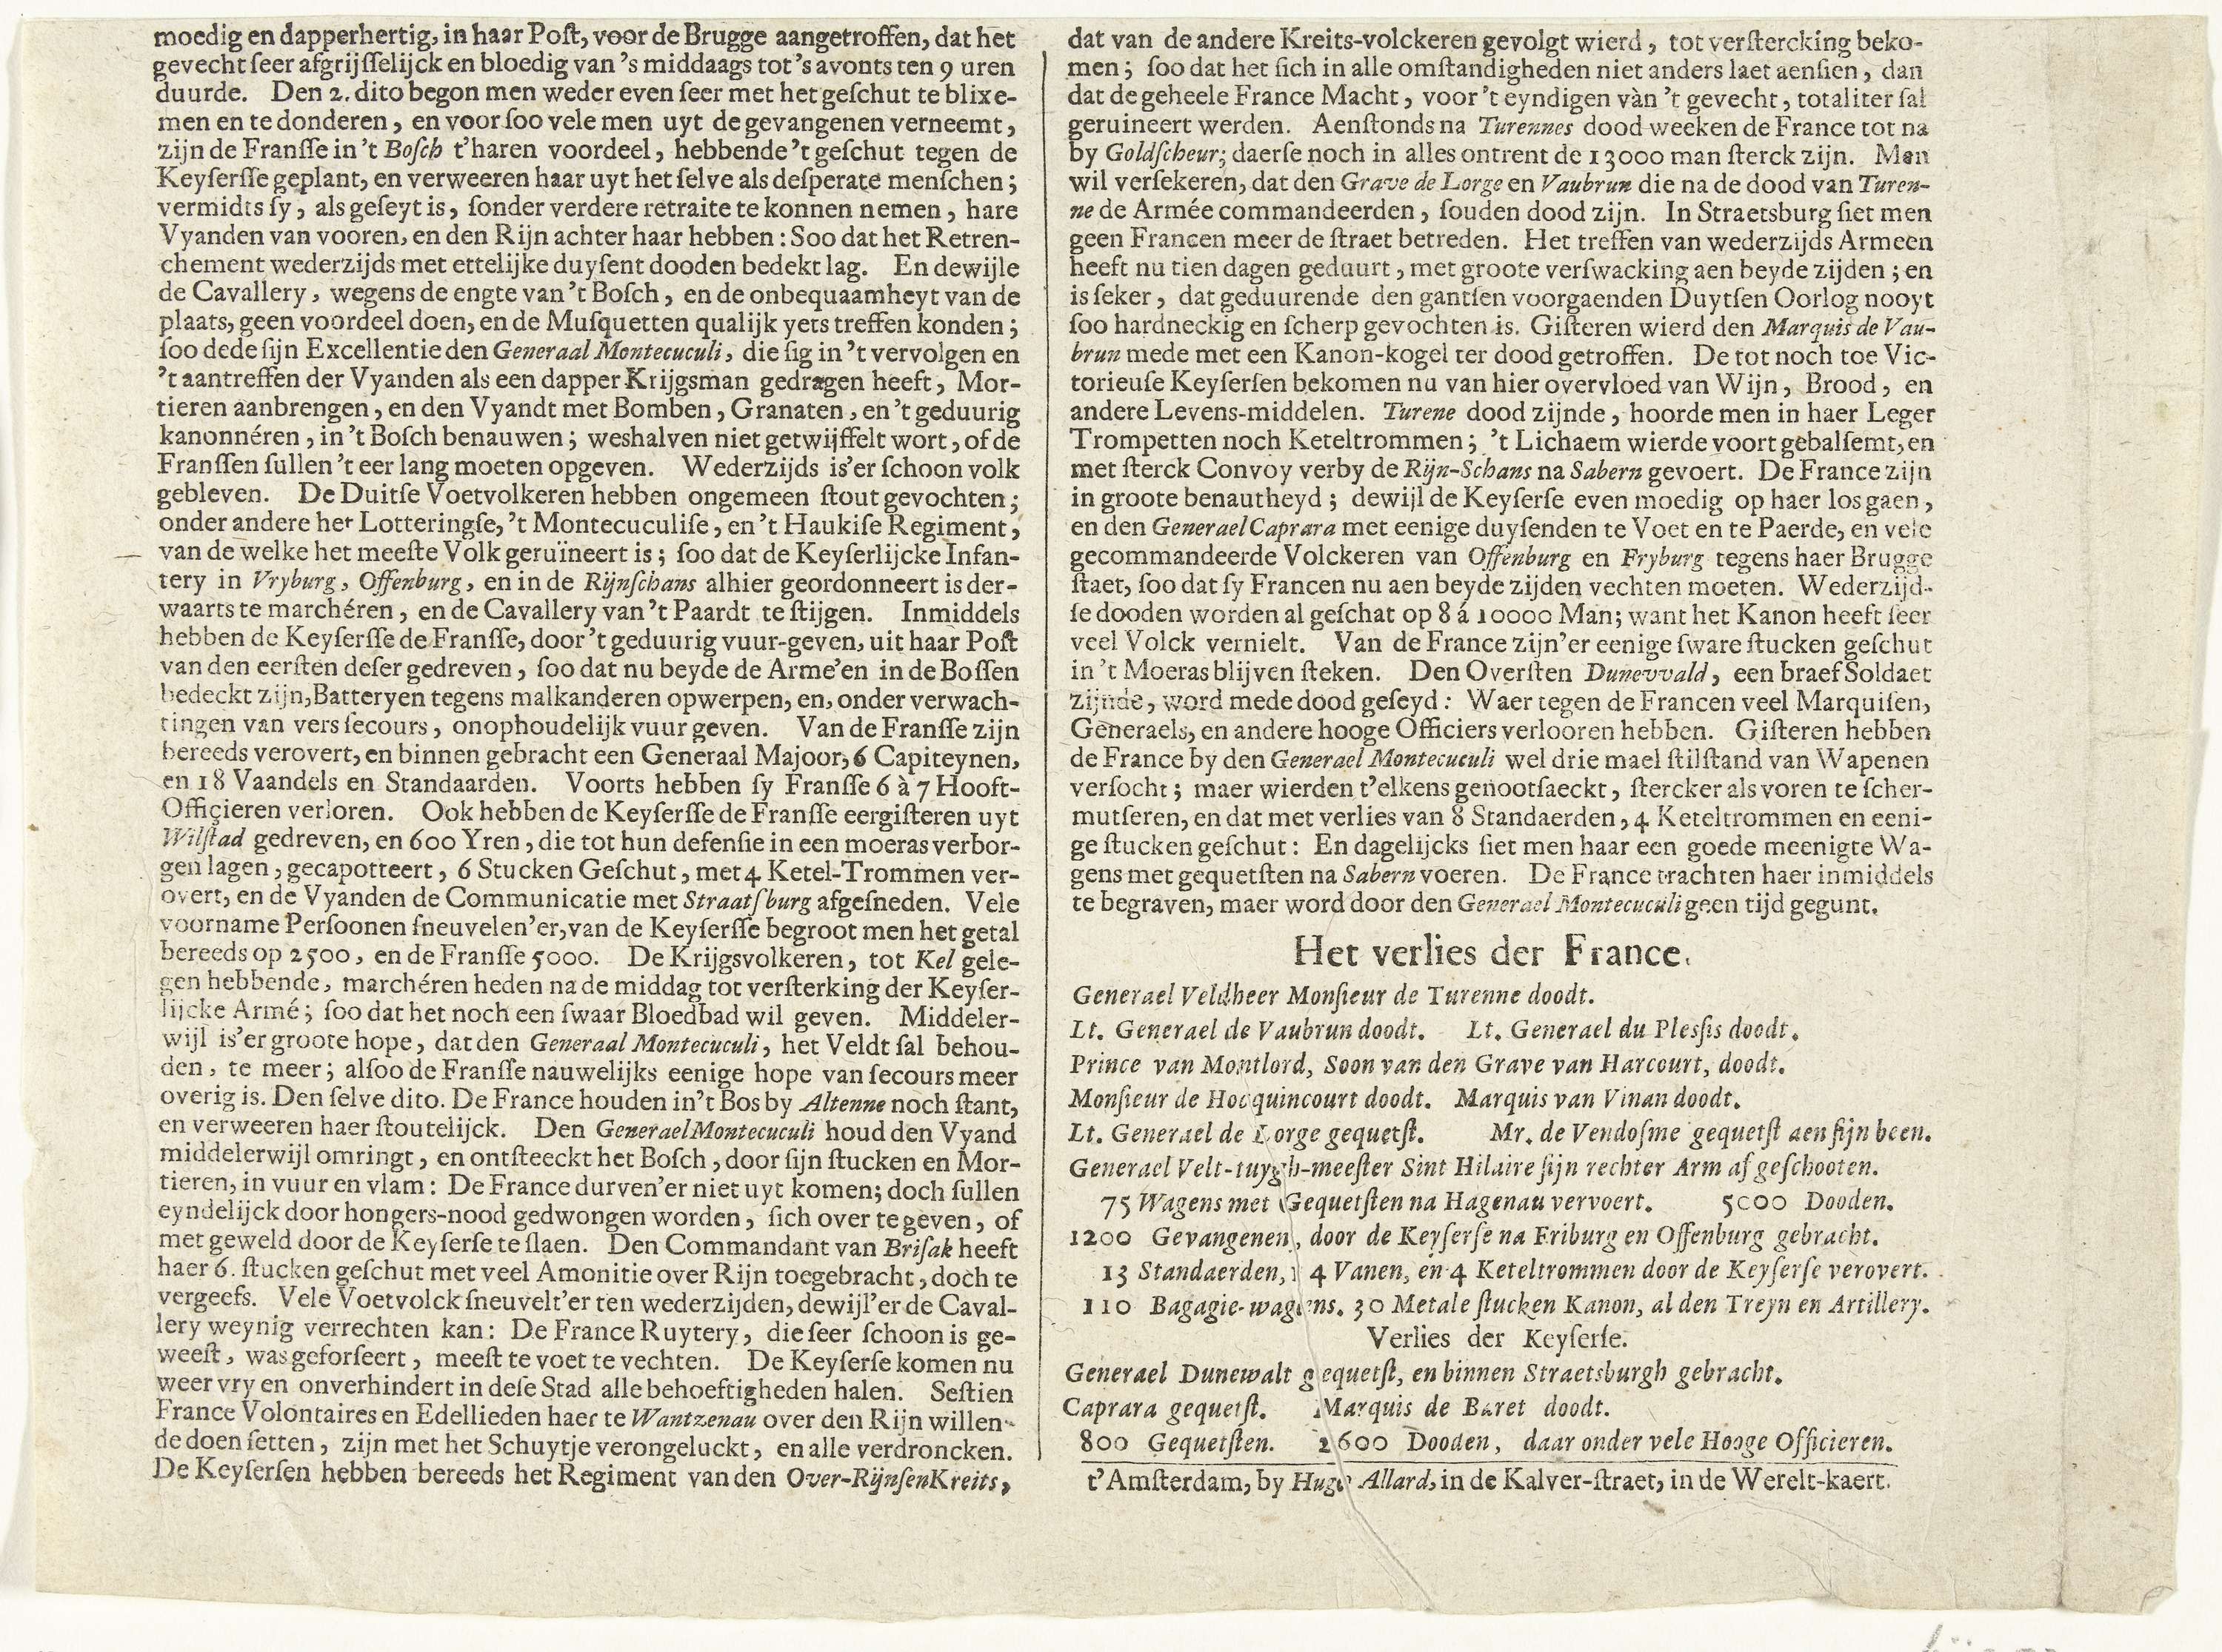 moedig en dapperhertig, in haar Poſt, voor de Brugge aangetroffen, dat het
gevecht ſeer afgrijſſelijck en bloedig van 's middaags tot 's avonts ten 9 uren
duurde. Den 2. dito begon men weder even ſeer met het geſchut te blixe-
men en te donderen, en voor ſoo vele men uyt de gevangenen verneemt,
zijn de Franſſe in 't Boſch t'haren voordeel, hebbende 't geſchut tegen de
Keyſerſſe geplant, en verweeren haar uyt het ſelve als deſperate menſchen;
vermidts ſy, als geſeyt is, ſonder verdere retraite te konnen nemen, hare
Vyanden van vooren, en den Rijn achter haar hebben: Soo dat het Retren-
chement wederzijds met ettelijke duyſent dooden bedekt lag. En dewijle
de Cavallery, wegens de engte van 't Boſch, en de onbequaamheyt van de
plaats, geen voordeel doen, en de Muſquetten qualijk yets treffen konden;
ſoo dede ſijn Excellentie den Generaal Montecuculi, die ſig in 't vervolgen en
't aantreffen der Vyanden als een dapper Krijgsman gedragen heeft, Mor-
tieren aanbrengen, en den Vyandt met Bomben, Granaten, en 't geduurig
kanonnéren, in 't Boſch benauwen; weshalven niet getwijffelt wort, of de
Franſſen ſullen 't eer lang moeten opgeven. Wederzijds is'er ſchoon volk
gebleven. De Duitſe Voetvolkeren hebben ongemeen ſtout gevochten;
onder andere het Lotteringſe, 't Montecuculiſe, en 't Haukiſe Regiment,
van de welke het meeſte Volk geruïneert is; ſoo dat de Keyſerlijcke Infan-
tery in Vryburg, Offenburg, en in de Rijnſchans alhier geordonneert is der-
waarts te marchéren, en de Cavallery van 't Paardt te ſtijgen. Inmiddels
hebben de Keyſerſſe de Franſſe, door 't geduurig vuur-geven, uit haar Poſt
van den eerſten deſer gedreven, ſoo dat nu beyde de Arme'en in de Boſſen
bedeckt zijn, Batteryen tegens malkanderen opwerpen, en, onder verwach-
tingen van vers ſecours, onophoudelijk vuur geven. Van de Franſſe zijn
bereeds verovert, en binnen gebracht een Generaal Majoor, 6 Capiteynen,
en 18 Vaandels en Standaarden. Voorts hebben ſy Franſſe 6 à 7 Hooft-
Officieren verloren. Ook hebben de Keyſerſſe de Franſſe eergiſteren uyt
Wilſtad gedreven, en 600 Yren, die tot hun defenſie in een moeras verbor-
gen lagen, gecapotteert, 6 Stucken Geſchut, met 4 Ketel-Trommen ver-
overt, en de Vyanden de Communicatie met Straatſburg afgeſneden. Vele
voorname Perſoonen ſneuvelen'er, van de Keyſerſſe begroot men het getal
bereeds op 2500, en de Franſſe 5000. De Krijgsvolkeren, tot Kel gele-
gen hebbende, marchéren heden na de middag tot verſterking der Keyſer-
lijcke Armé; ſoo dat het noch een ſwaar Bloedbad wil geven. Middeler-
wijl is'er groote hope, dat den Generaal Montecuculi, het Veldt ſal behou-
den, te meer; alſoo de Franſſe nauwelijks eenige hope van ſecours meer
overig is. Den ſelve dito. De France houden in't Bos by Altenne noch ſtant,
en verweeren haer ſtoutelijck. Den Generael Montecuculi houd den Vyand
middelerwijl omringt, en ontſteeckt het Boſch, door ſijn ſtucken en Mor-
tieren, in vuur en vlam: De France durven'er niet uyt komen; doch ſullen
eyndelijck door hongers-nood gedwongen worden, ſich over te geven, of
met geweld door de Keyſerſe te ſlaen. Den Commandant van Briſak heeft
haer 6. ſtucken geſchut met veel Amonitie over Rijn toegebracht, doch te
vergeefs. Vele Voetvolck ſneuvelt'er ten wederzijden, dewijl'er de Caval-
lery weynig verrechten kan: De France Ruytery, die ſeer ſchoon is ge-
weeſt, was geforſeert, meeſt te voet te vechten. De Keyſerſe komen nu
weer vry en onverhindert in deſe Stad alle behoeftigheden halen. Seſtien
France Volontaires en Edellieden haer te Wantzenau over den Rijn willen-
de doen ſetten, zijn met het Schuytje verongeluckt, en alle verdroncken.
De Keyſerſen hebben bereeds het Regiment van den Over-RijnſenKreits,
dat van de andere Kreits-volckeren gevolgt wierd, tot verſtercking beko-
men; ſoo dat het ſich in alle omſtandigheden niet anders laet aenſien, dan
dat de geheele France Macht, voor 't eyndigen vàn 't gevecht, totaliter ſal
geruineert werden. Aenſtonds na Turennes dood weeken de France tot na
by Goldſcheur; daerſe noch in alles ontrent de 13000 man ſterck zijn. Men
wil verſekeren, dat den Grave de Lorge en Vaubrun die na de dood van Turen-
ne de Armée commandeerden, ſouden dood zijn. In Straetsburg ſiet men
geen Francen meer de ſtraet betreden. Het treffen van wederzijds Armeen
heeft nu tien dagen geduurt, met groote verſwacking aen beyde zijden; en
is ſeker, dat geduurende den gantſen voorgaenden Duytſen Oorlog nooyt
ſoo hardneckig en ſcherp gevochten is. Giſteren wierd den Marquis de Vau-
brun mede met een Kanon-kogel ter dood getroffen. De tot noch toe Vic-
torieuſe Keyſerſen bekomen nu van hier overvloed van Wijn, Brood, en
andere Levens-middelen. Turene dood zijnde, hoorde men in haer Leger
Trompetten noch Keteltrommen; 't Lichaem wierde voort gebalſemt, en
met ſterck Convoy verby de Rijn-Schans na Sabern gevoert. De France zijn
in groote benautheyd; dewijl de Keyſerſe even moedig op haer los gaen,
en den Generael Caprara met eenige duyſenden te Voet en te Paerde, en vele
gecommandeerde Volckeren van Offenburg en Fryburg tegens haer Brugge
ſtaet, ſoo dat ſy Francen nu aen beyde zijden vechten moeten. Wederzijd-
ſe dooden worden al geſchat op 8 á 10000 Man; want het Kanon heeft ſeer
veel Volck vernielt. Van de France zijn'er eenige ſware ſtucken geſchut
in 't Moeras blijven ſteken. Den Overſten Dunevvald, een braef Soldaet
zijnde, word mede dood geſeyd: Waer tegen de Francen veel Marquiſen,
Generaels, en andere hooge Officiers verlooren hebben. Giſteren hebben
de France by den Generael Montecuculi wel drie mael ſtilſtand van Wapenen
verſocht; maer wierden t'elkens genootſaeckt, ſtercker als voren te ſcher-
mutſeren, en dat met verlies van 8 Standaerden, 4 Keteltrommen en eeni-
ge ſtucken geſchut: En dagelijcks ſiet men haar een goede meenigte Wa-
gens met gequetſten na Sabern voeren. De France trachten haer inmiddels
te begraven, maer word door den Generael Montecuculi geen tijd gegunt.
Het verlies der France.
Generael Veldheer Monſieur de Turenne doodt.
Lt. Generael de Vaubrun doodt. Lt. Generael du Pleſſis doodt.
Prince van Montlord, Soon van den Grave van Harcourt, doodt.
Monſieur de Hocquincourt doodt. Marquis van Vinan doodt.
Lt. Generael de Lorge gequetſt. Mr. de Vendoſme gequetſt aen ſijn been.
Generael Velt-tuygh-meeſter Sint Hilaire ſijn rechter Arm af geſchooten.
75 Wagens met Gequetſten na Hagenau vervoert. 5000 Dooden.
1200 Gevangenen, door de Keyſerſe na Friburg en Offenburg gebracht.
13 Standaerden, 4 Vanen, en 4 Keteltrommen door de Keyſerſe verovert.
110 Bagagie-wagens. 30 Metale ſtucken Kanon, al den Treyn en Artillery.
Verlies der Keyſerſe.
Generael Dunewalt gequetſt, en binnen Straetsburgh gebracht.
Caprara gequetſt. Marquis de Baret doodt.
800 Gequetſten. 2600 Dooden, daar onder vele Hooge Officieren.
t'Amſterdam, by Hugo Allard, in de Kalver-ſtraet, in de Werelt-kaert.